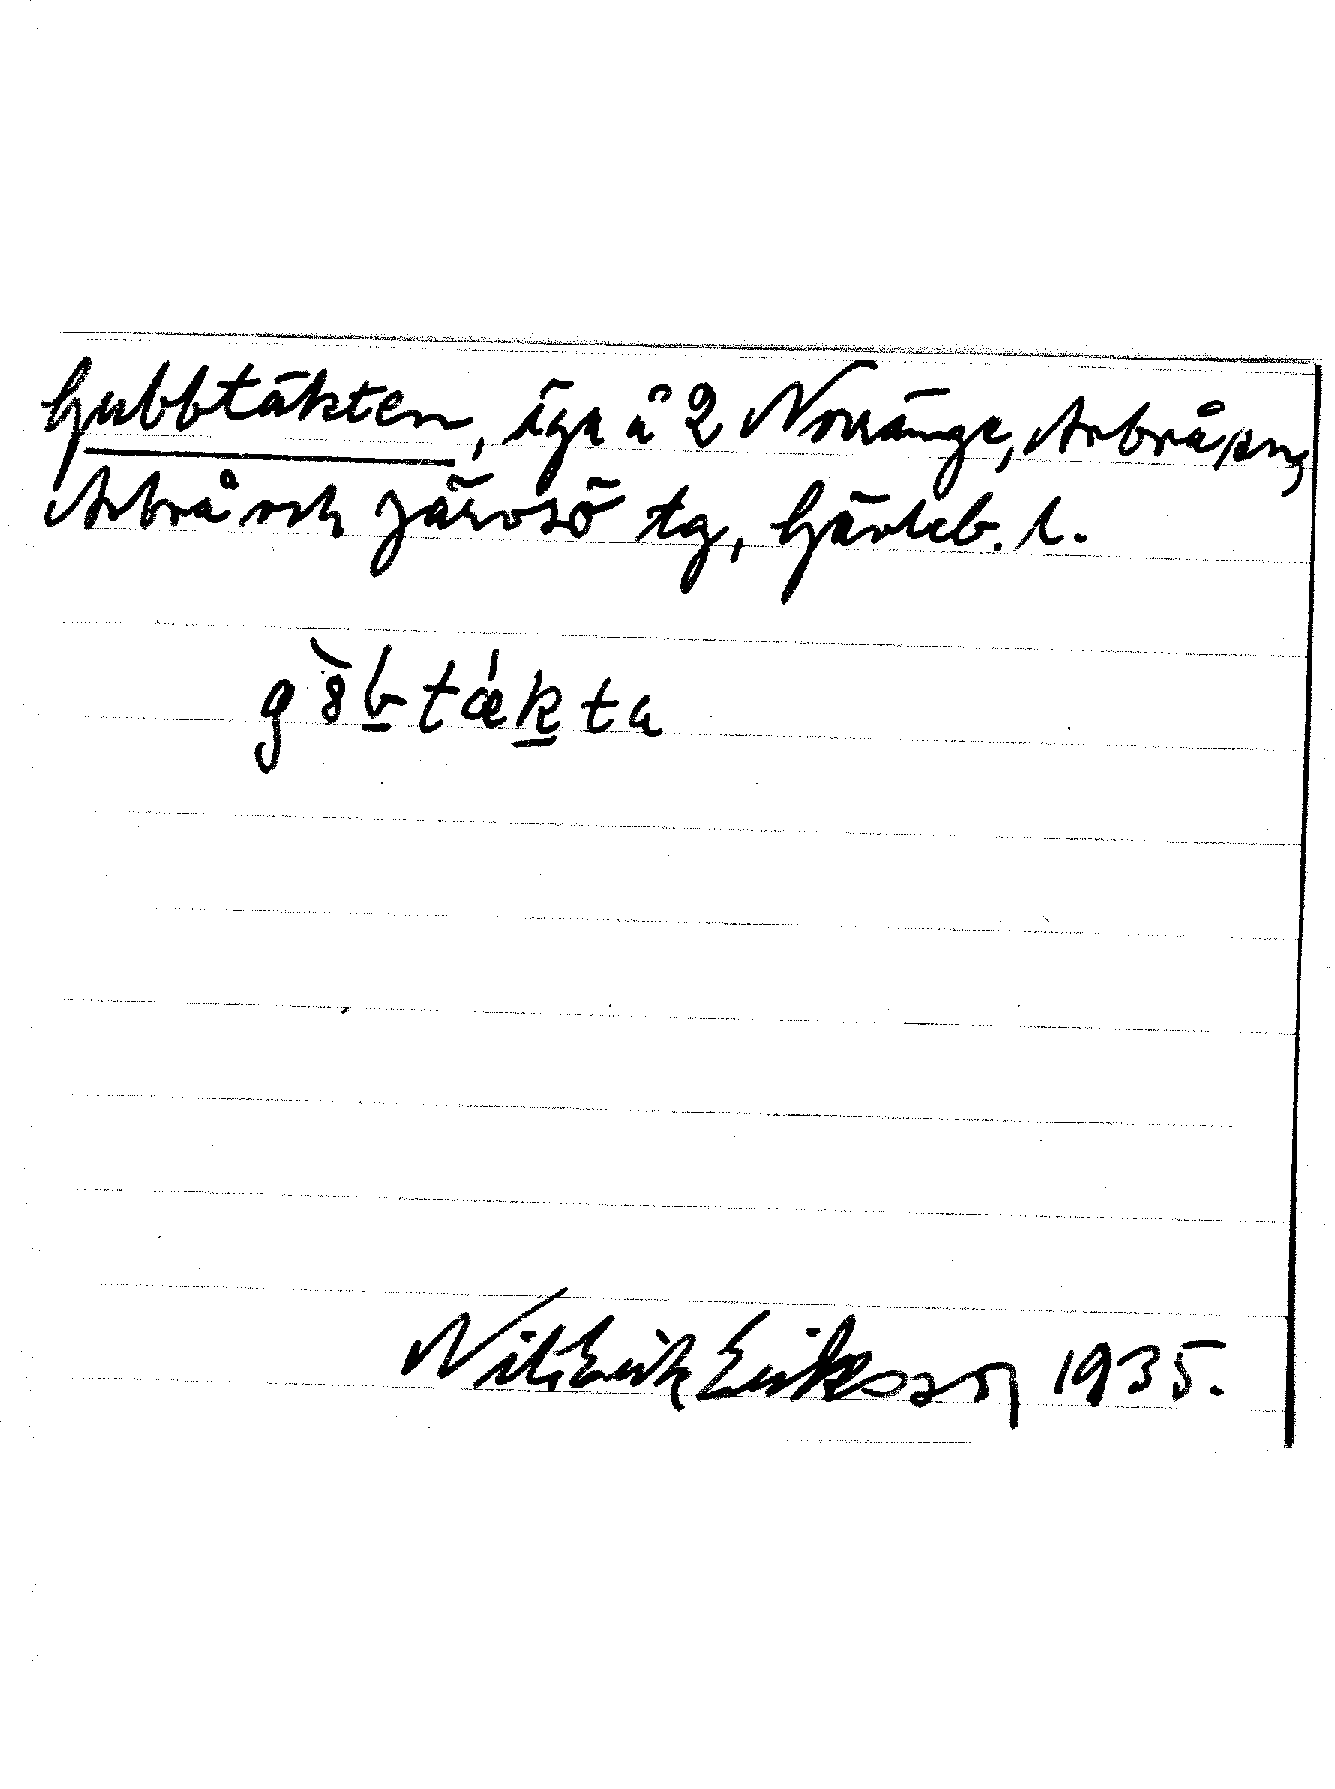 Gubbtäkten, äga å 2 Norränge, Arbrå sn,
Arbrå och Järvsö tg, Gävleb. l.
gȣ̀btǽkta
Nils Erik Eriksson 1935.